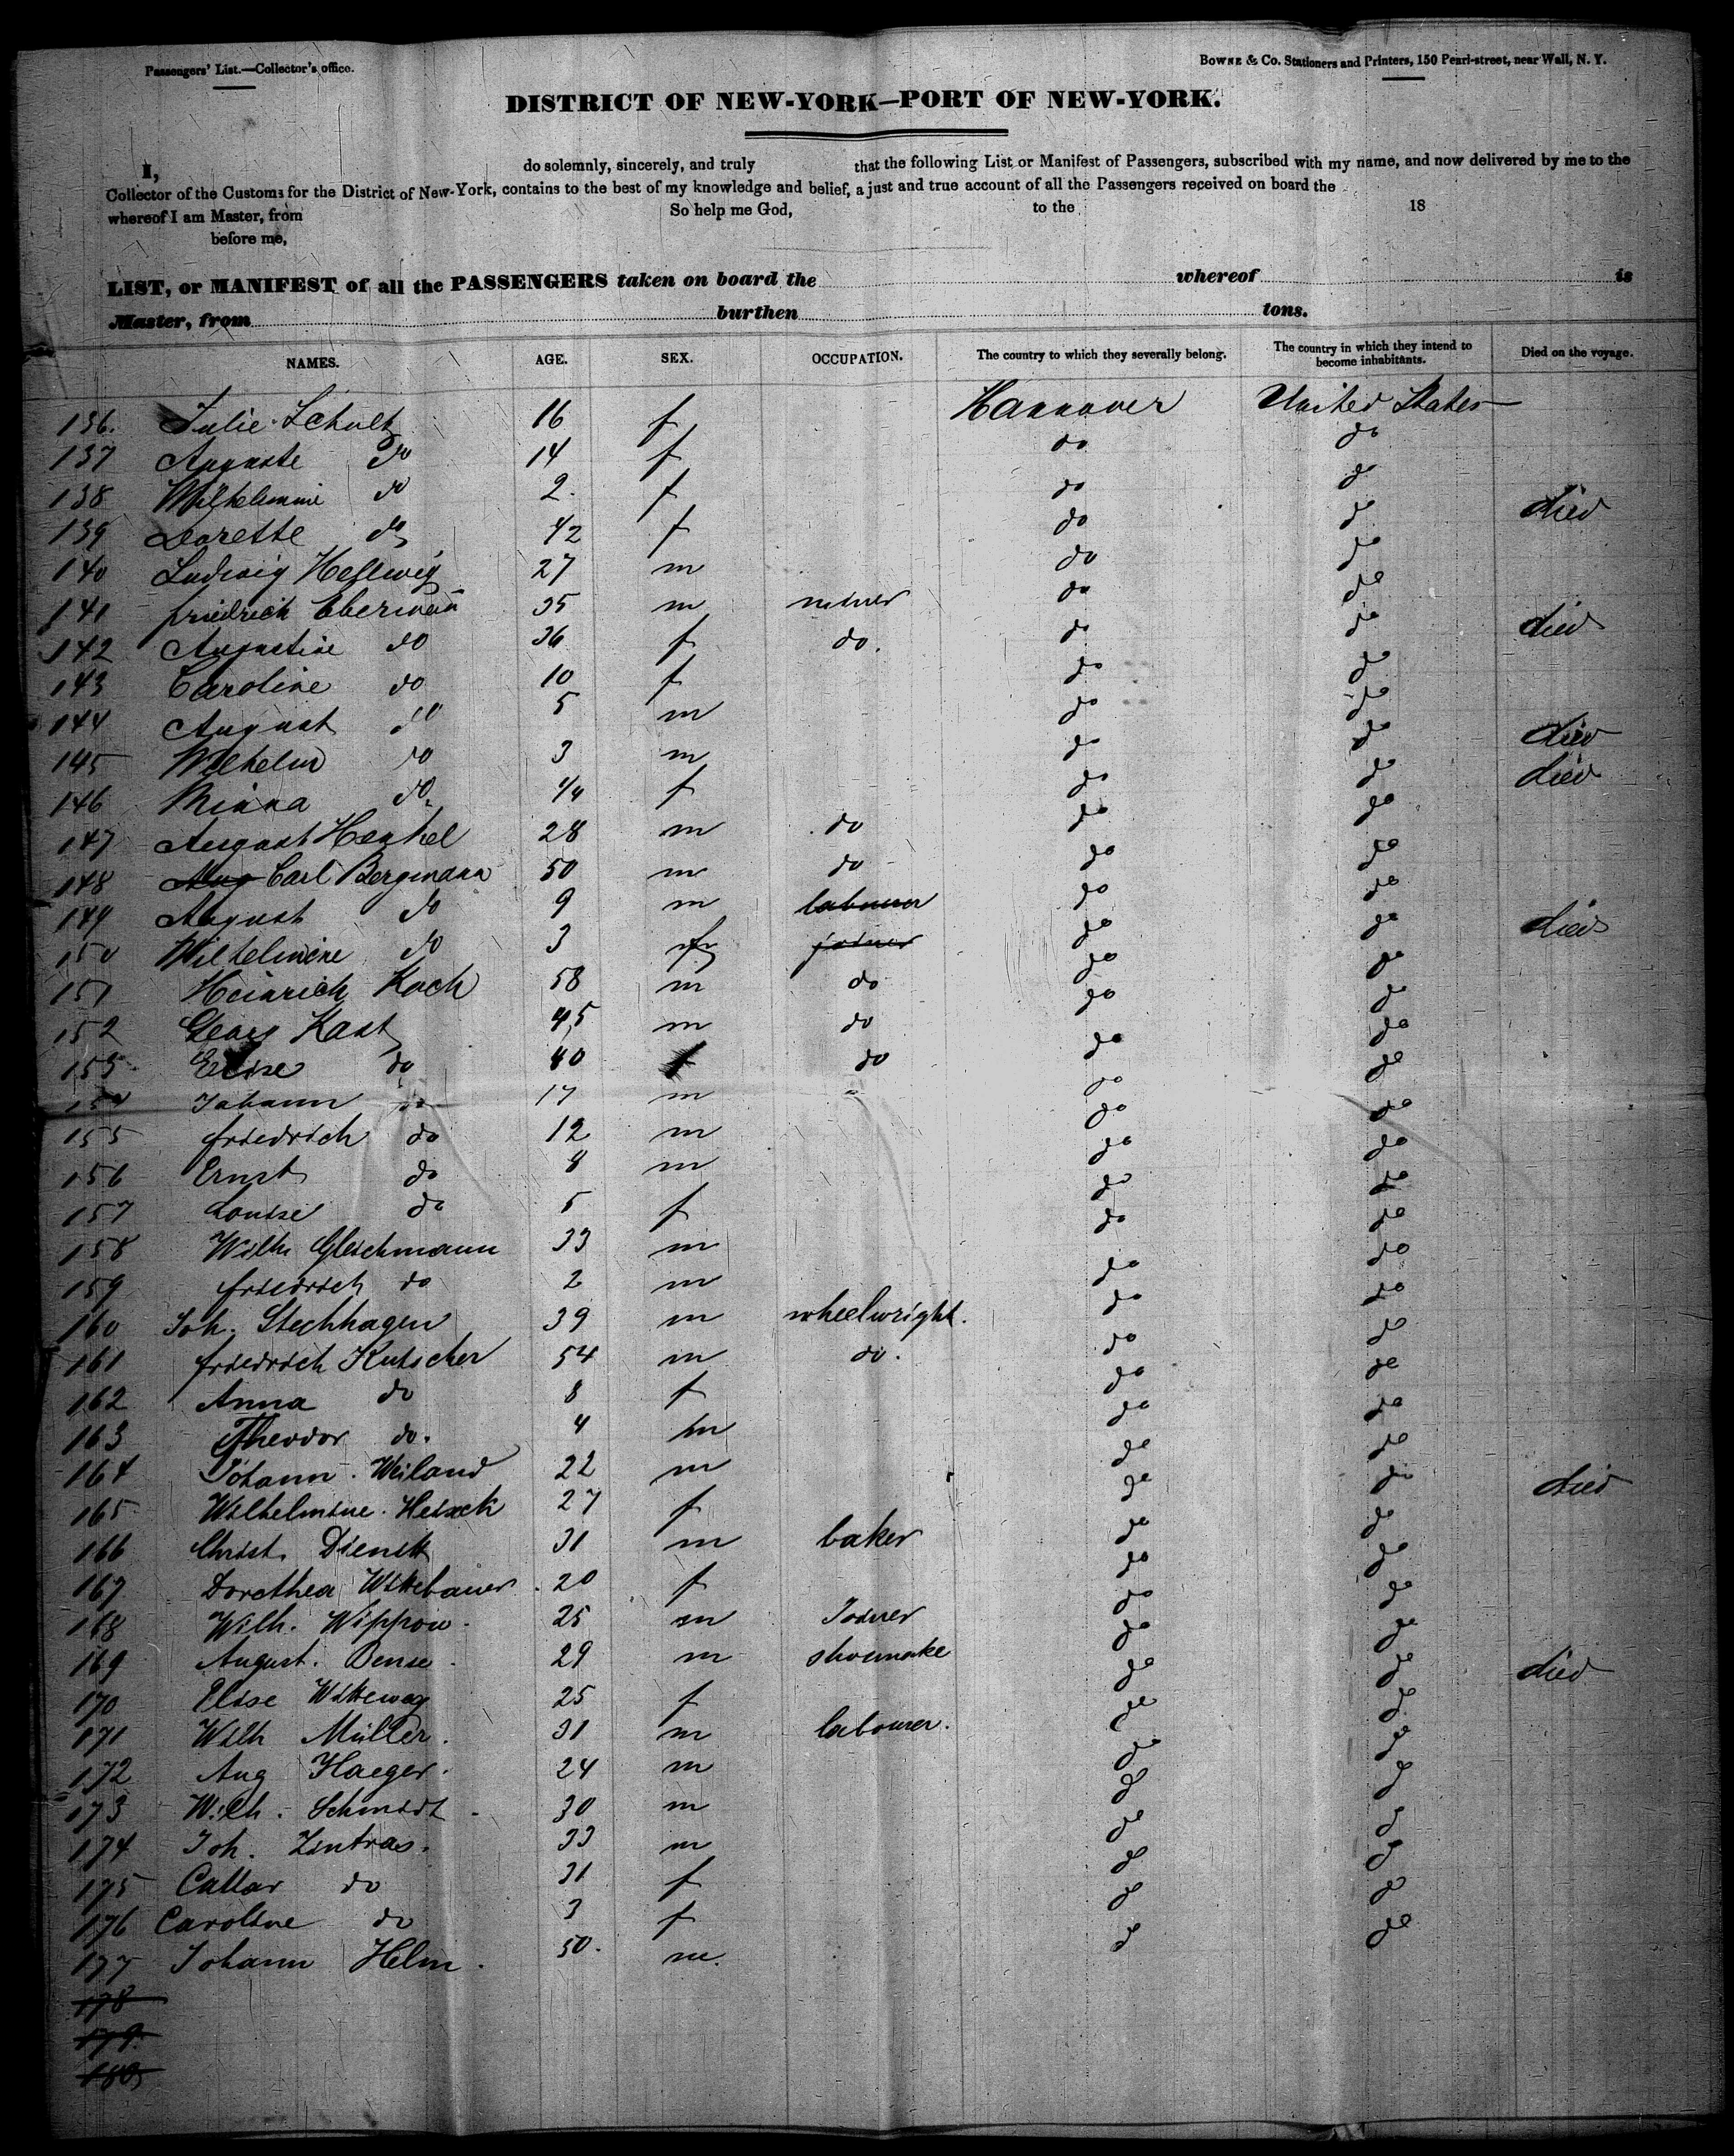 Passengers' List.—Collector's office.
BOWNE & Co. Stationers and Printers, 150 Pearl-street, near Wall, N. Y.
DISTRICT OF NEW-YORK—PORT OF NEW-YORK.
I, do solemnly, sincerely, and truly that the following List or Manifest of Passengers, subscribed with my name, and now delivered by me to the
Collector of the Customs for the District of New-York, contains to the best of my knowledge and belief, a just and true account of all the Passengers received on board the
whereof I am Master, from So help me God, to the 18
before me,
LIST, or MANIFEST of all the PASSENGERS taken on board the whereof is
Master, from burthen tons.
NAMES. AGE. SEX. OCCUPATION. The country to which they severally belong. The country in which they intend to become inhabitants. Died on the voyage.
136. Julie Schult 16 f Hannover United States
137 Auguste do 14 f do do
138 Wilhelmine do 2. f do do
139 Dorette do 1/2 f do do died
140 Ludwig Hellwig 27 m do do
141 friedrich Ebermann 35 m miner do do
142 Augustine do 36 f do. do do died
143 Caroline do 10 f do do
144 August do 5 m do do
145 Wilhelm do 3 m do do died
146 Minna do 1/4 f do do died
147 August Henkel 28 m do do do
148 Aug Carl Bergmann 50 m do do do
149 August do 9 m labourer do do
150 Wilhelmine do 3 f joiner do do died
151 Heinrich Koch 58 m do do do
152 Georg Kast 45 m do do do
153 Elise do 40 f do do do
154 Johann do 17 m do do
155 friedrich do 12 m do do
156 Ernst do 8 m do do
157 Louise do 5 f do do
158 Wilh Gleichmann 33 m do do
159 friedrich do 2 m do do
160 Joh. Stechhagen 39 m wheelwright. do do
161 friedrich Kutscher 54 m do. do do
162 Anna do 8 f do do
163 Theodor do. 4 m do do
164 Johann Weiland 22 m do do
165 Wilhelmine 27 f do do died
166 Christ. Dienst 31 m baker do do
167 Dorothea 20 f do do
168 Wilh. Wippou 25 m Joiner do do
169 August. Bense 29 m shoemake do do
170 Elise 25 f do do died
171 Wilh Müller. 31 m labourer. do do
172 Aug Haeger. 24 m do do
173 Wilh. Schmidt 30 m do do
174 Joh. Zintras. 33 m do do
175 do 31 f do do
176 Caroline do 3 f do do
177 Johann Helm. 50. m. do do
178
179.
180